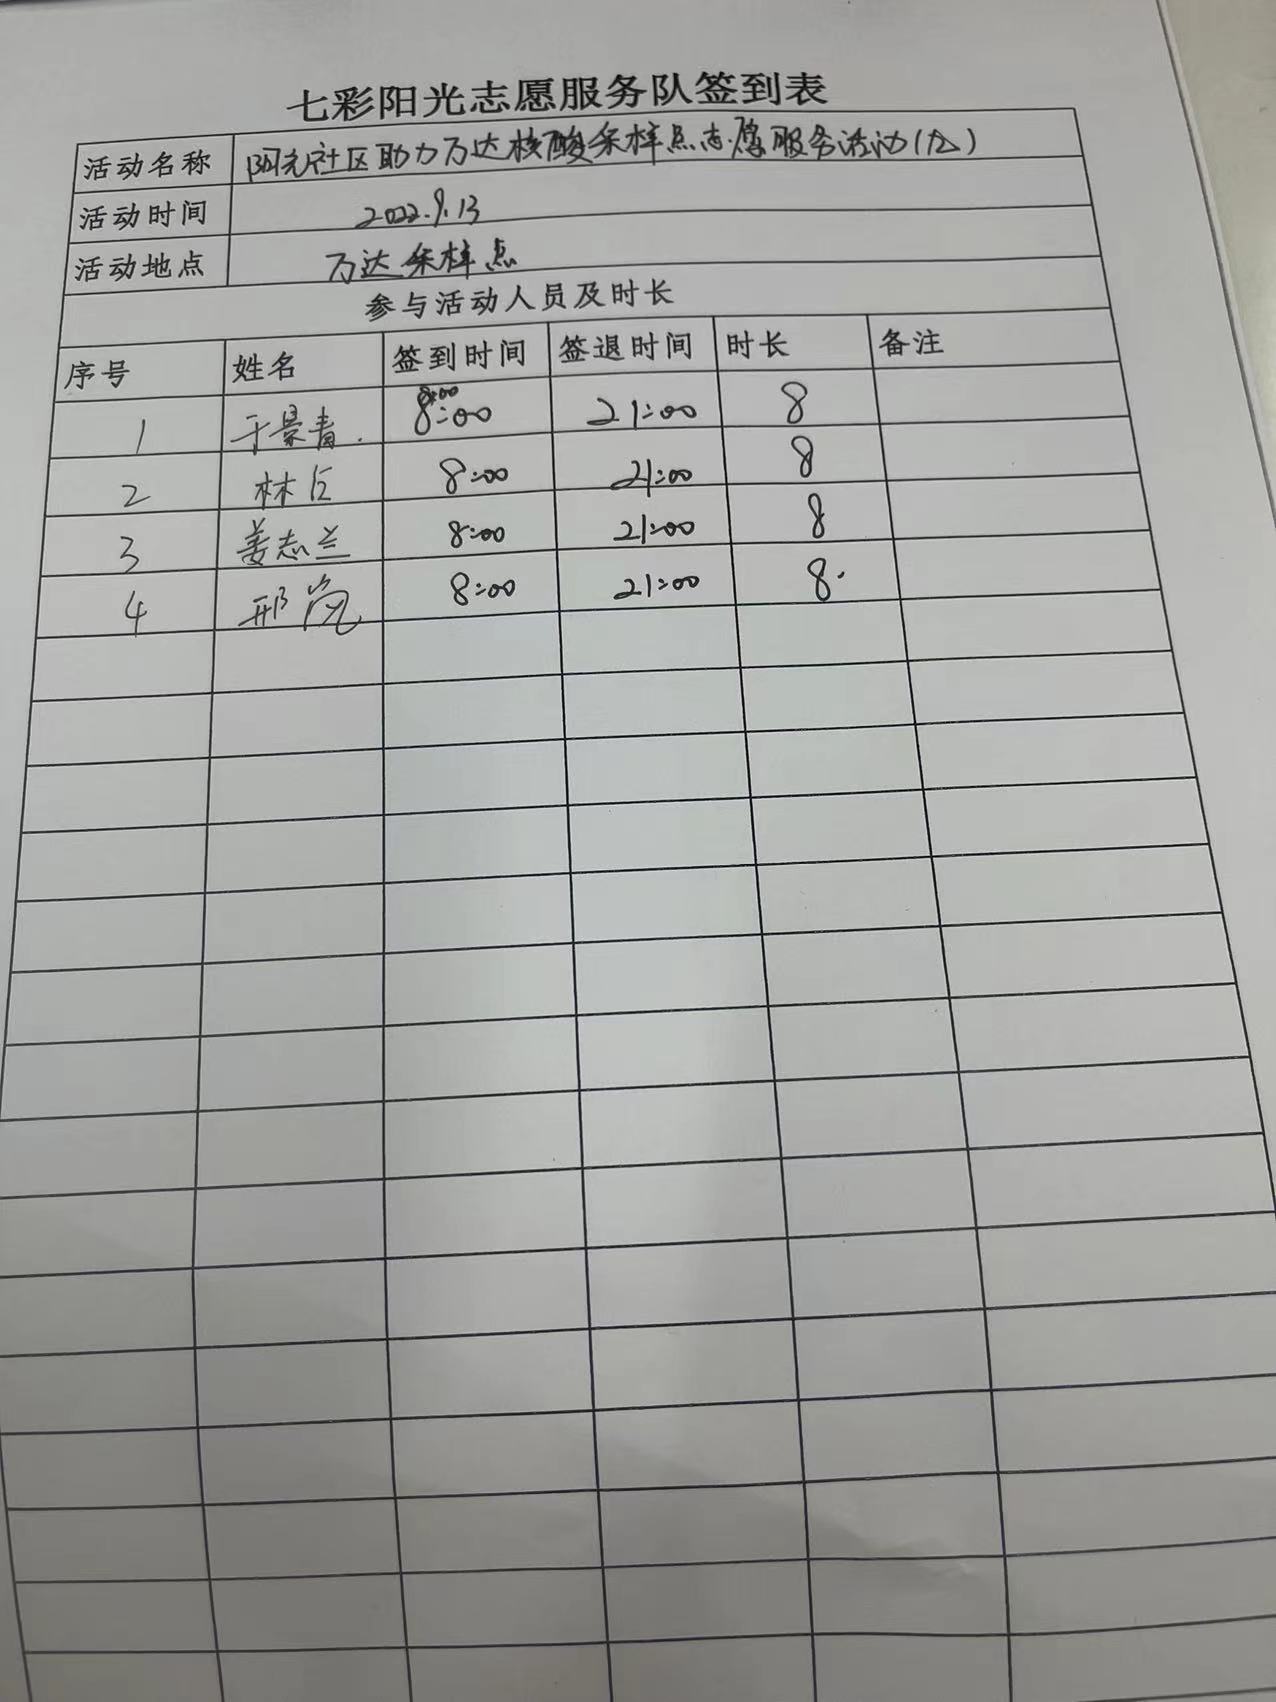 七彩阳光志愿服务队签到表
活动名称 阳光社区助力万达核酸采样点志愿服务活动(九)
活动时间 2022.9.13
活动地点 万达采样点
参与活动人员及时长
序号 姓名 签到时间 签退时间 时长 备注
8:00
1 于景青. 8:00 21:00 8
2 林丘 8:00 21:00 8
3 姜志兰 8:00 21:00 8
4 邢岚 8:00 21:00 8.